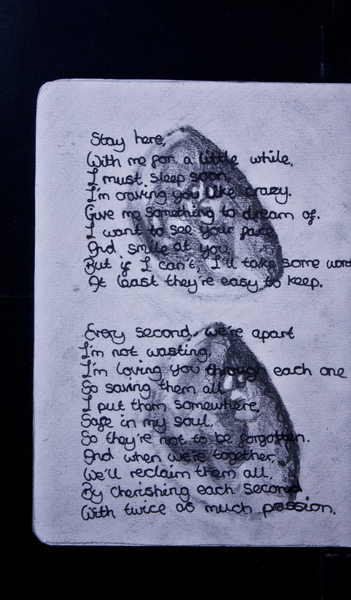 Stay here,
With me for a little while.
I must sleep soon,
I'm craving you like crazy.
Give me something to dream of.
I want to see your face
And smile at you
But if I can't, I'll take some word
At least they're easy to keep.
Every second we're apart
I'm not wasting,
I'm loving you through each one
So saving them all,
I put them somewhere,
Safe in my soul,
So they're not to be forgotten.
And when we're together,
We'll reclaim them all,
By cherishing each second
With twice as much passion.